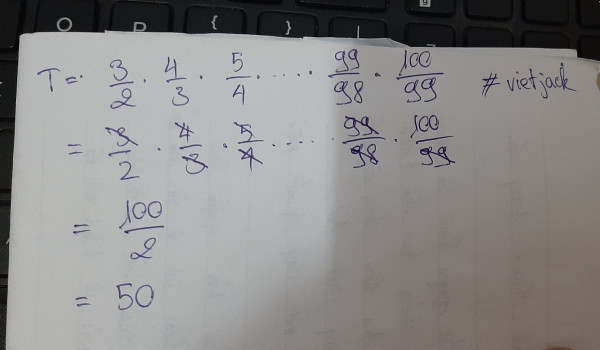 O P { } |
T = 3/2 · 4/3 · 5/4 · ..... · 99/98 · 100/99 # vietjack
= 3/2 · 4/3 · 5/4 · ..... · 99/98 · 100/99
= 100/2
= 50